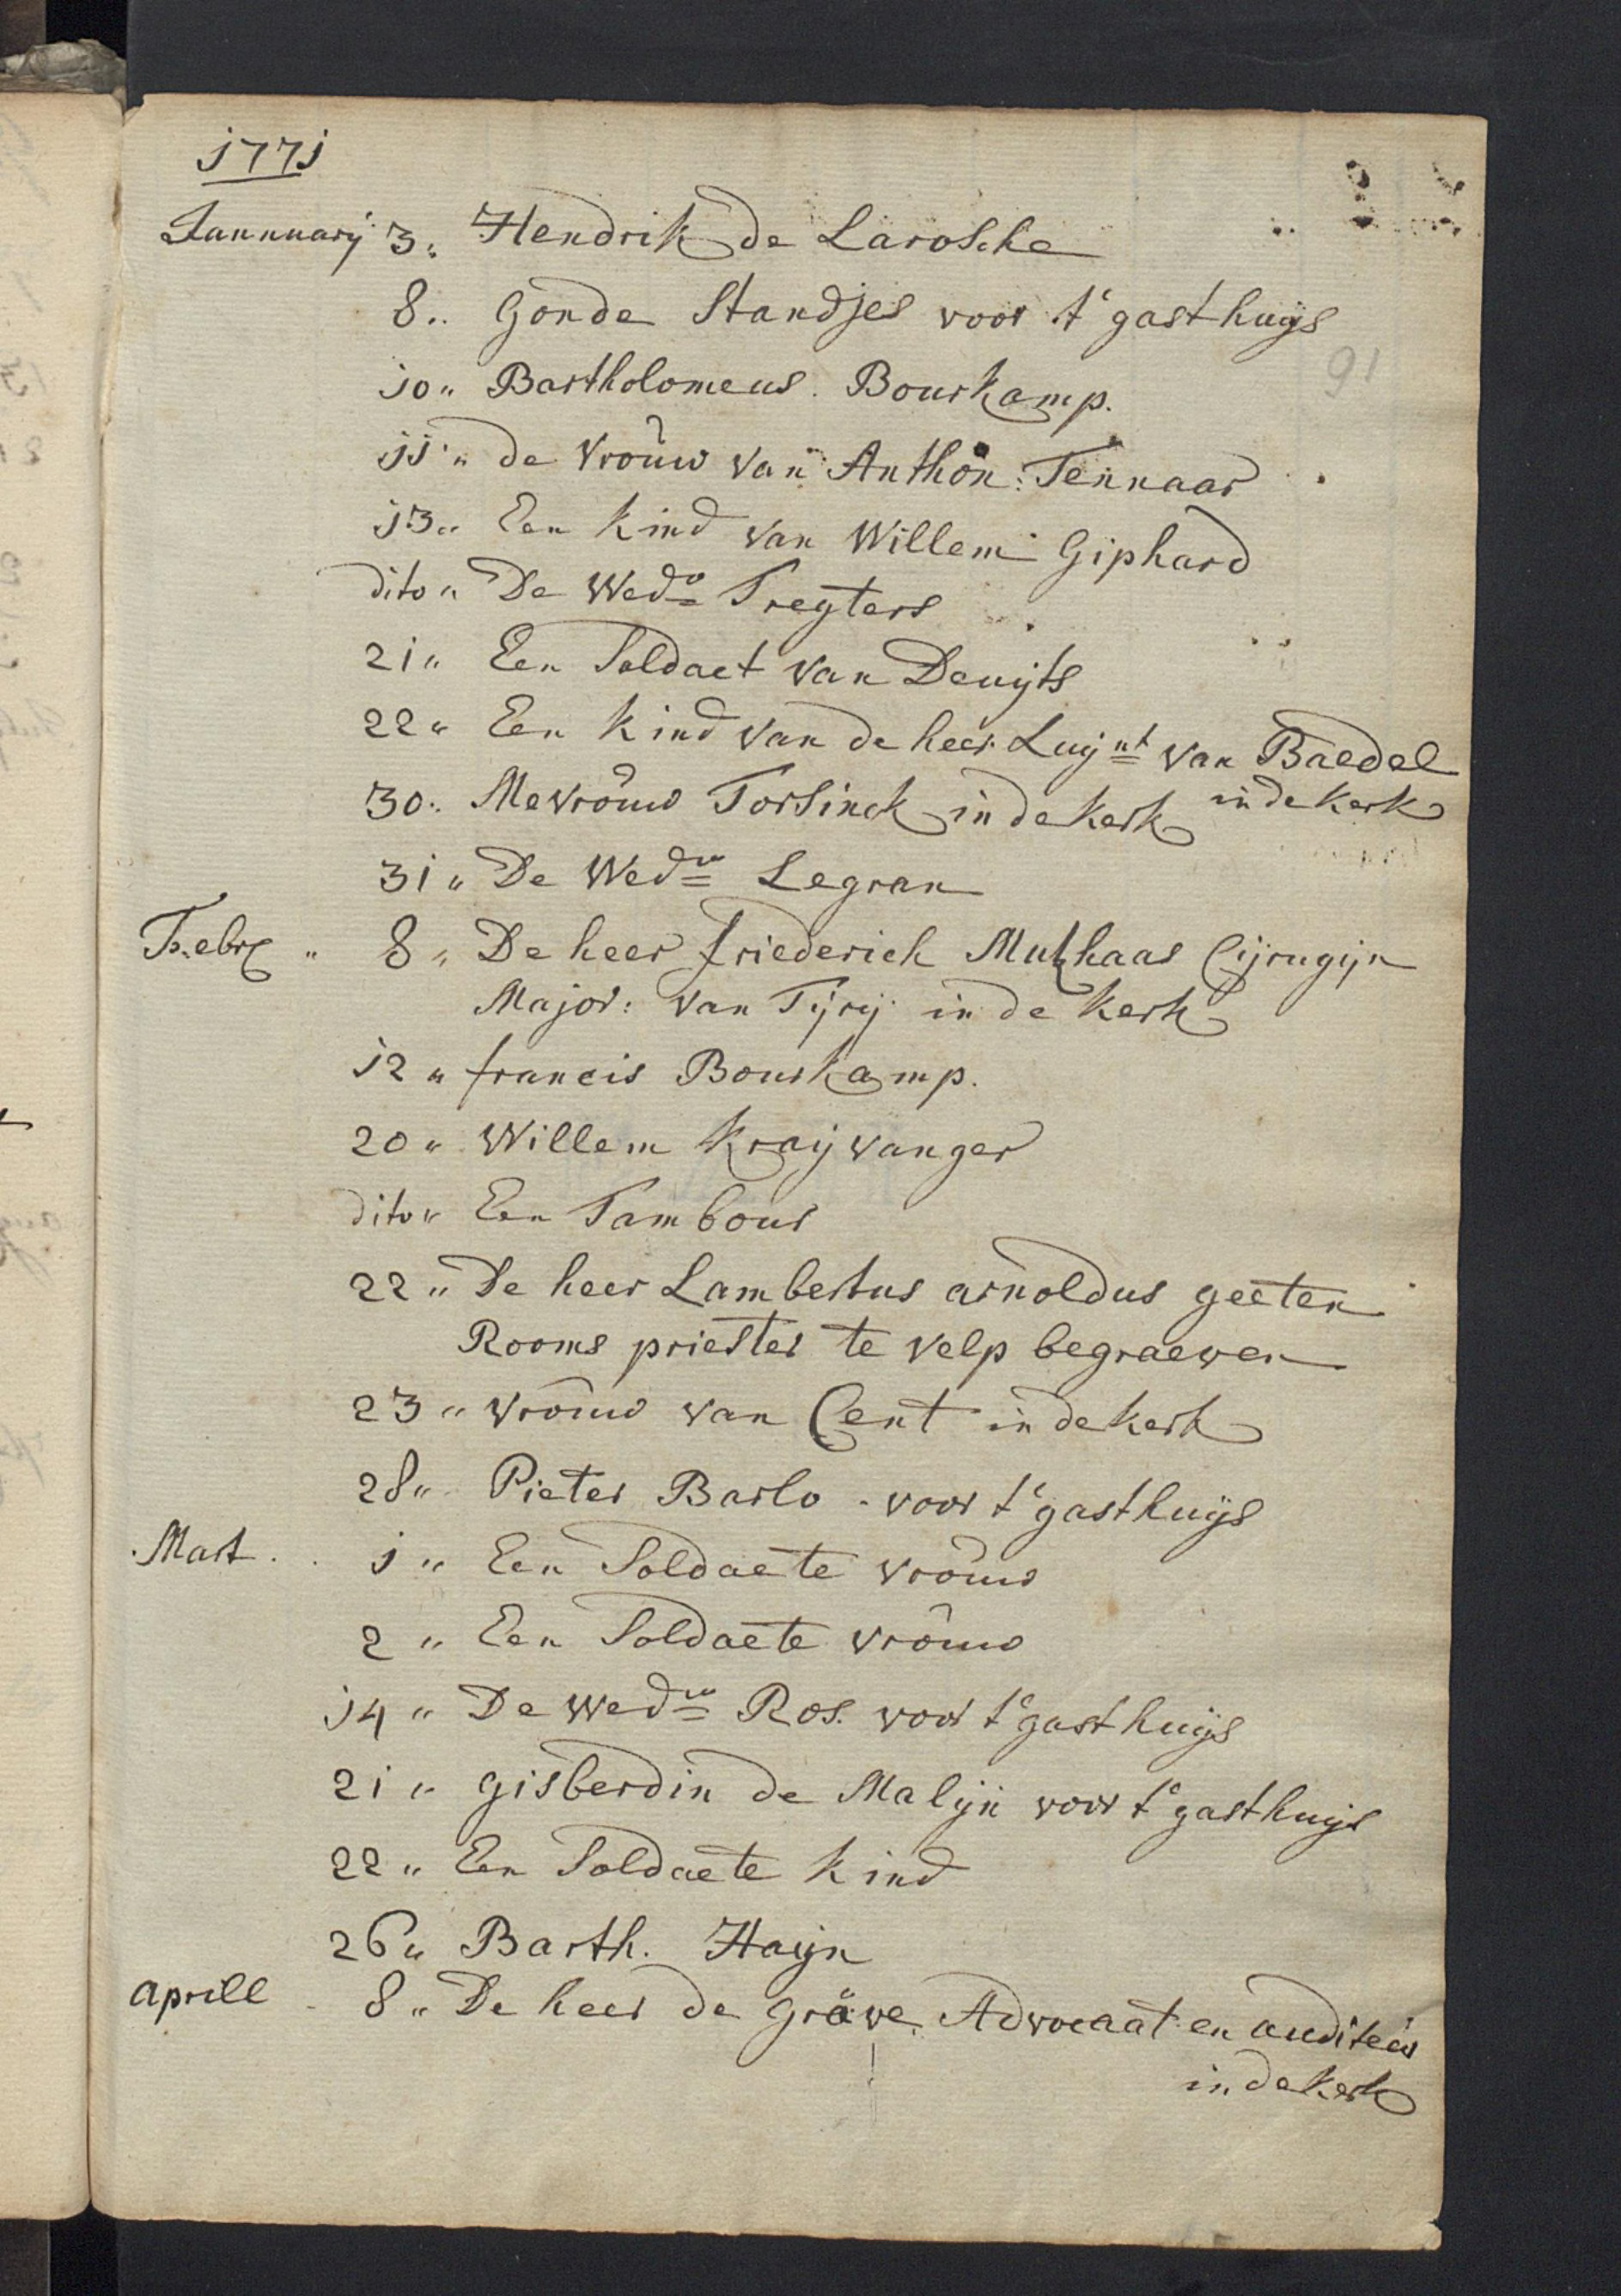 1771
Jannuarij 3,, Hendrik de Larosche
8,, Gonde Standjes voor t' gasthuijs
91
10,, Bartholomeus. Bourkamp.
11,, de vrouw van Anthon: Tennaar
13,, Een kind van Willem Giphard
dito,, De Wedw Tregters
21,, Een Soldaet van Deuijts
22,, Een kind van de heer Luijnt van Baedel
in de kerk
30,, Mevrouw Torsinck in de kerk
31,, De Wedw Legran
Febr ,, 8,, De heer friederich Mutzhaas Cijrugijn
Major: van Tijrij in de kerk
12,, francis Bourkamp.
20,, Willem Kraijvanger
dito,, Een Tambour
22,, De heer Lambertus arnoldus geeten
Rooms priester te velp begraeven
23,, vrouw van Cent in de kerk
28,, Pieter Barlo - voor t' gasthuijs
Mart. . 1,, Een Soldaete vrouw
2,, Een Soldaete vrouw
14,, De wedw Ros. voor t' gasthuijs
21,, gisberdin de Malijn voor t' gasthuijs
22,, Een Soldaete kind
26,, Barth. Haijn
Aprill - 8,, De heer de Gräve, Advocaat en auditeur
in de kerk